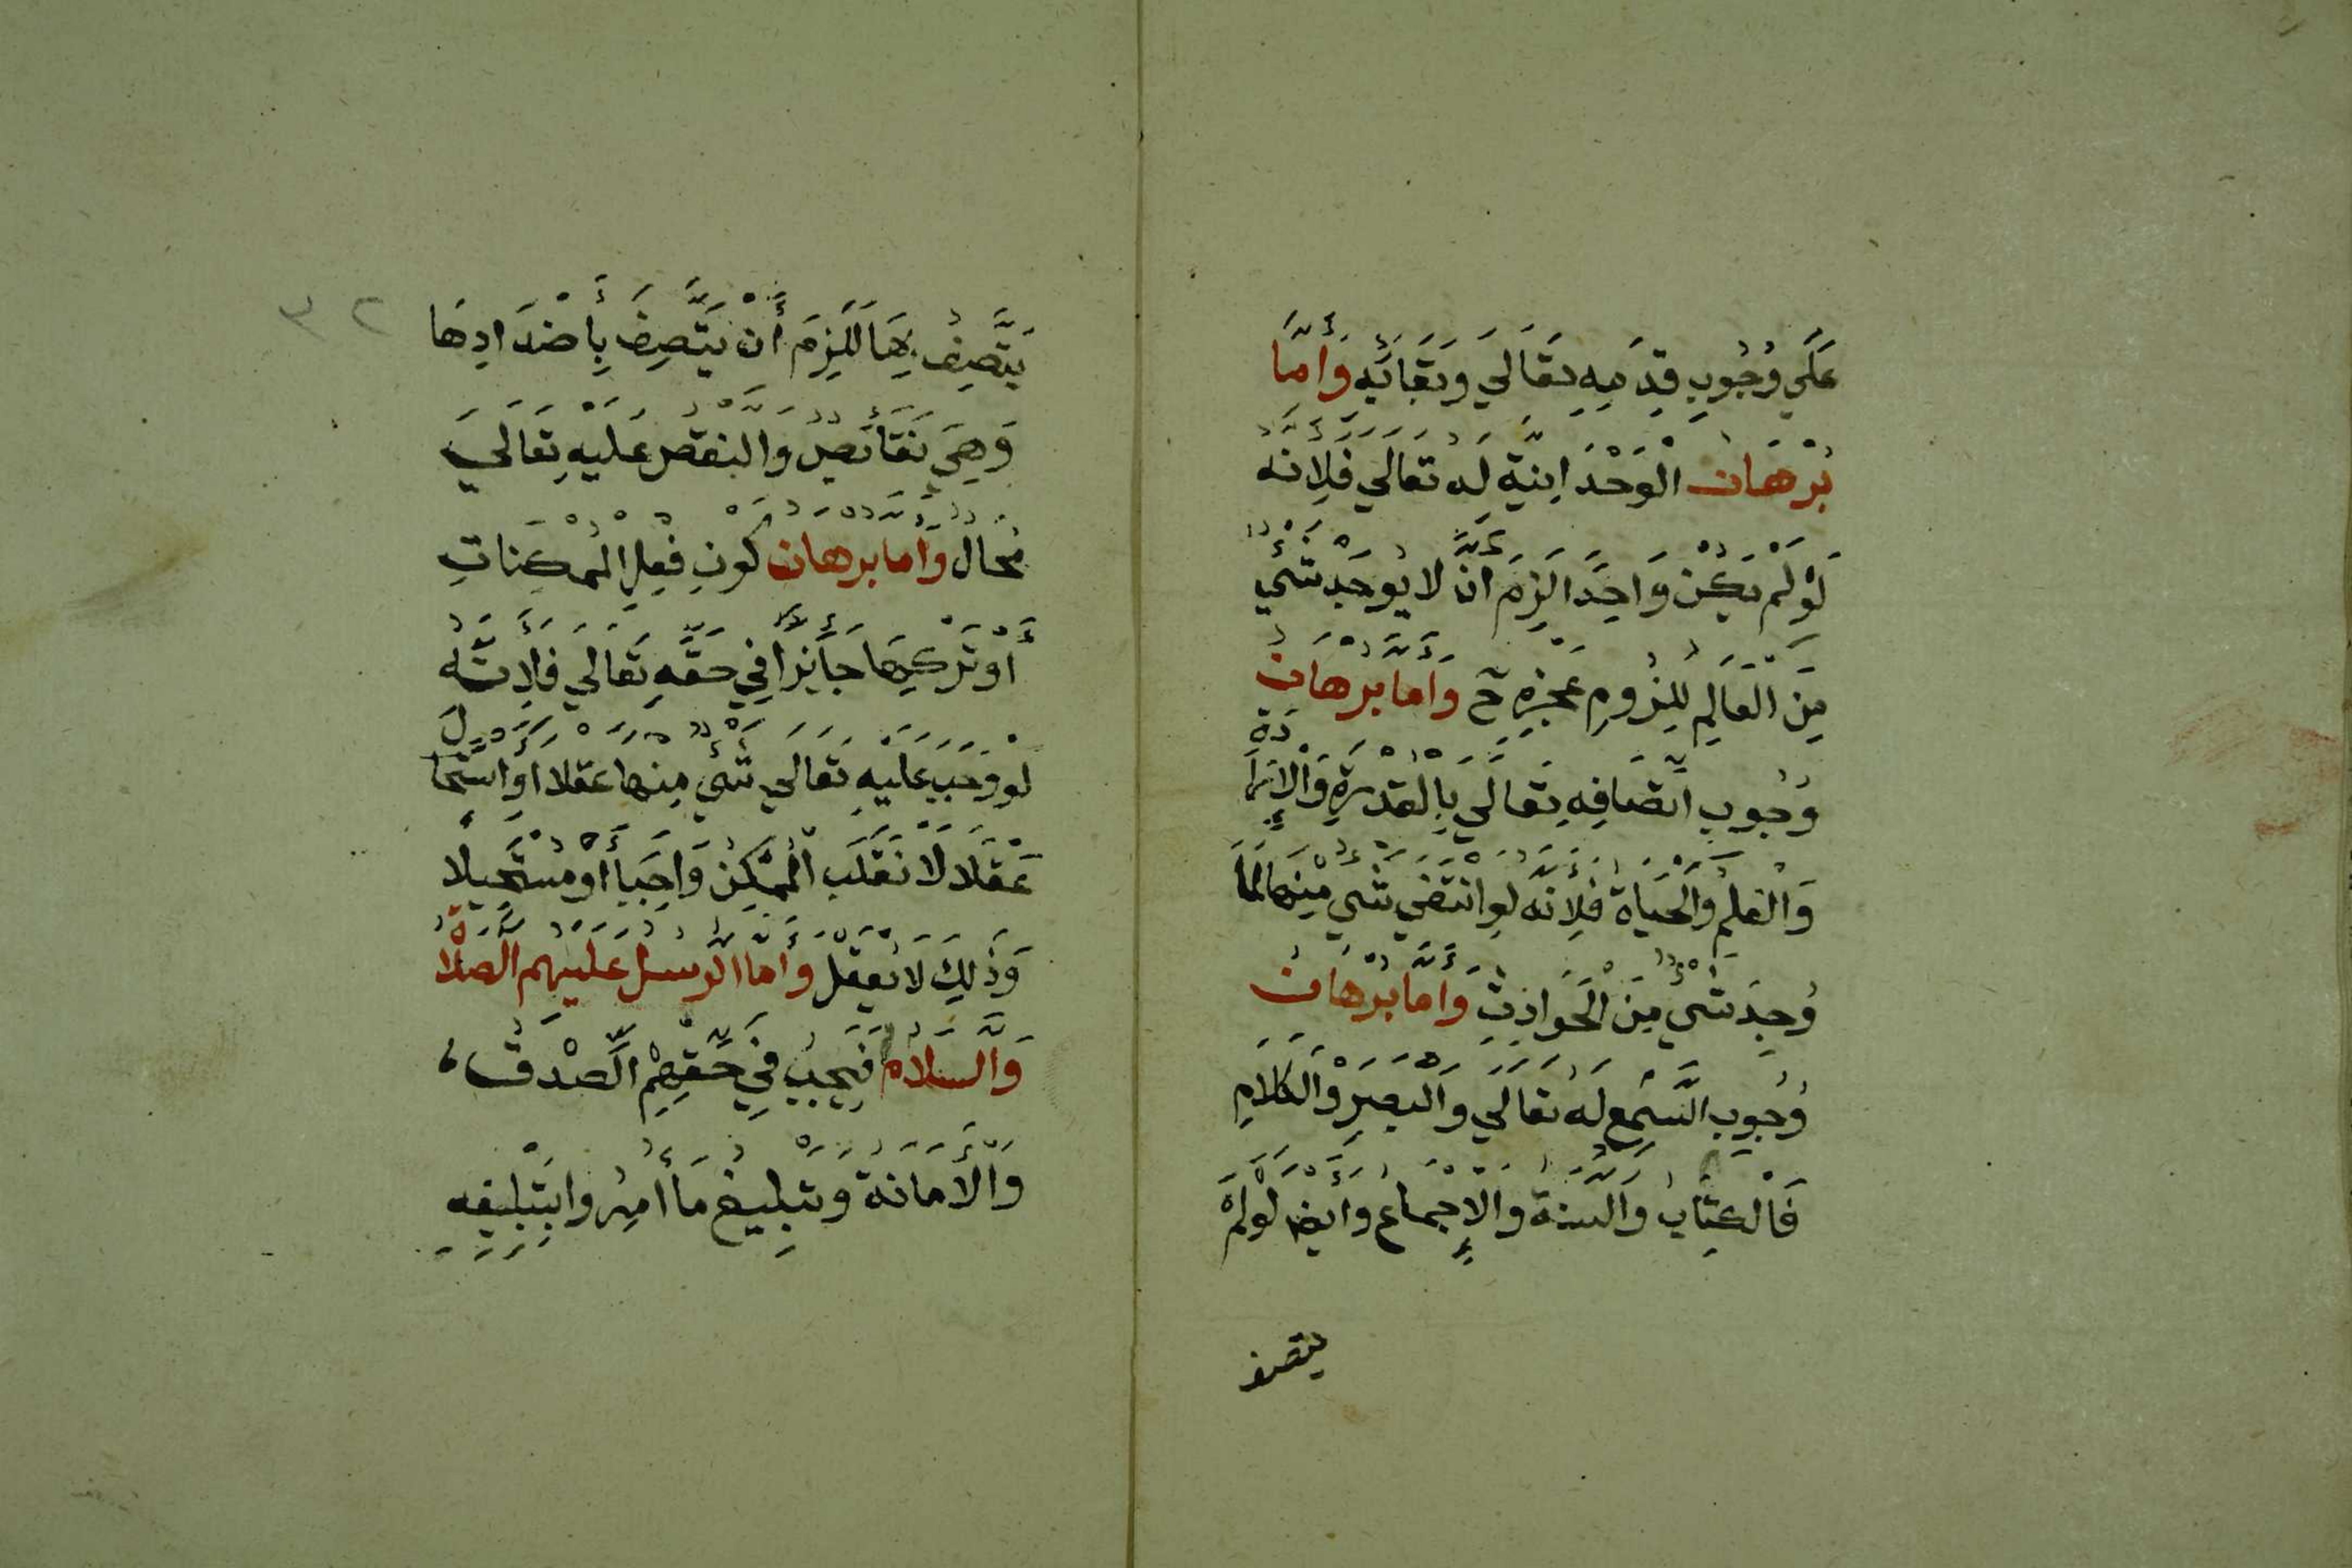 عَلَي وُجُوبِ قِدَمِهِ تَعَالَي وَبَقَائِهِ وَأَمَّا
بُرْهَانُ الْوَحْدَانِيَّةِ لَهُ تَعَالَي فَلِأَنَّهُ
لَوْ لَمْ يَكُنْ وَاحِدًا لَزِمَ أَنْ لَا يُوجَدَ شَيْءٌ
مِنَ الْعَالَمِ لِلُزُومِ عَجْزِهِ ح وَأَمَّا بُرْهَانُ
وُجُوبِ اتِّصَافِهِ تَعَالَي بِالْقُدْرَةِ وَالْإِرَادَةِ
وَالْعِلْمِ وَالْحَيَاةِ فَلِأَنَّهُ لَوِ انْتَفَي شَيْءٌ مِنْهَا لَمَا
وُجِدَ شَيْءٌ مِنَ الْحَوَادِثِ وَأَمَّا بُرْهَانُ
وُجُوبِ السَّمْعِ لَهُ تَعَالَي وَالْبَصَرِ وَالْكَلَامِ
فَالْكِتَابُ وَالسُّنَّةُ وَالْإِجْمَاعُ وَأَيْضًا لَوْ لَمْ
يتصف
٣٢
يَتَّصِفْ بِهَا لَلَزِمَ أَنْ يَتَّصِفَ بِأَضْدَادِهَا
وَهِيَ نَقَائِصُ وَالنَّقْصُ عَلَيْهِ تَعَالَي
مُحَالٌ وَأَمَّا بُرْهَانُ كَوْنِ فِعْلِ الْمُمْكِنَاتِ
أَوْ تَرْكِهَا جَائِزًا فِي حَقِّهِ تَعَالَي فَلِأَنَّهُ
لَوْ وَجَبَ عَلَيْهِ تَعَالَي شَيْءٌ مِنْهَا عَقْلًا أَوِ اسْتَحَالَ
عَقْلًا لَانْقَلَبَ الْمُمْكِنُ وَاجِبًا أَوْ مُسْتَحِيلًا
وَذَلِكَ لَا يُعْقَلُ وَأَمَّا الرُّسُلُ عَلَيْهِمُ الصَّلَاةُ
وَالسَّلَامُ فَيَجِبُ فِي حَقِّهِمُ الصِّدْقُ
وَالْأَمَانَةُ وَتَبْلِيغُ مَا أُمِرُوا بِتَبْلِيغِهِ